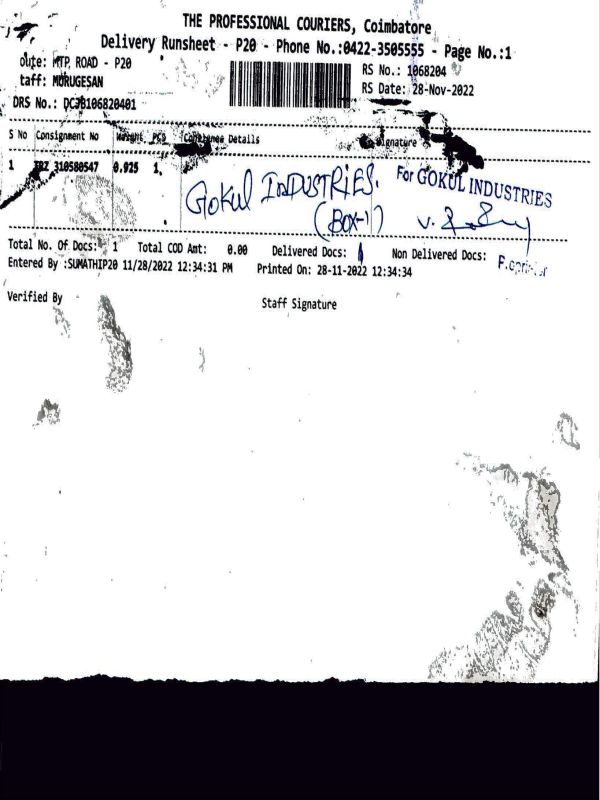 THE PROFESSIONAL COURIERS, Coimbatore
Delivery Runsheet - P20 - Phone No.:0422-3505555 - Page No.:1
oute: MTP ROAD - P20
RS No.: 1068204
taff: MURUGESAN
RS Date: 28-Nov-2022
DRS No.: DCJB106820401
S No Consignment No Weight PCS Consignee Details Signature
1 310580547 0.925 1
Gokul INDUSTRIES.
(BOX-1)
For GOKUL INDUSTRIES
Total No. Of Docs: 1 Total COD Amt: 0.00 Delivered Docs: Non Delivered Docs:
Entered By :SUMATHIP20 11/28/2022 12:34:31 PM Printed On: 28-11-2022 12:34:34
Verified By
Staff Signature